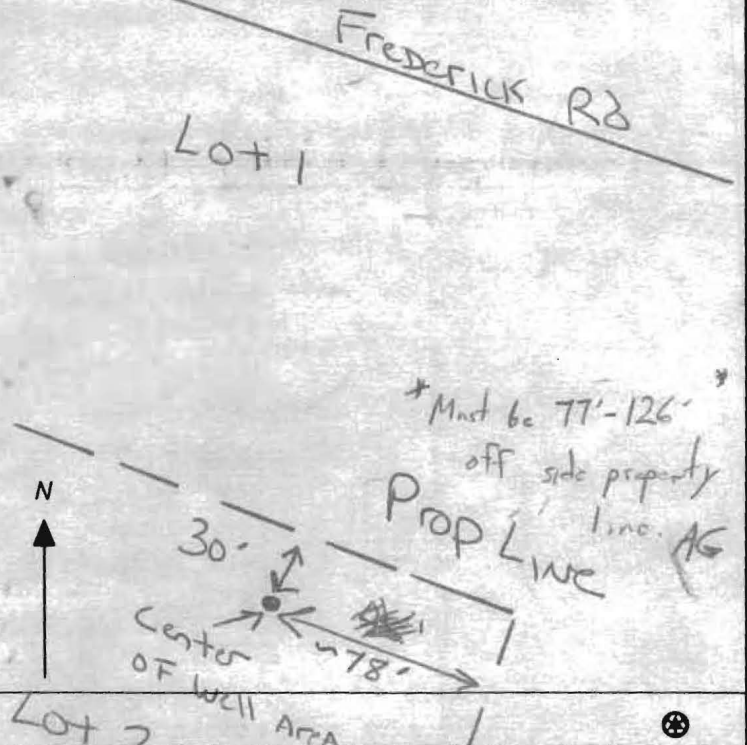 Frederick Rd
Lot 1
*Must be 77'-126' *
off side property
line. AG
Prop Line
N
30'
~78'
Center
of Well Area
Lot 2